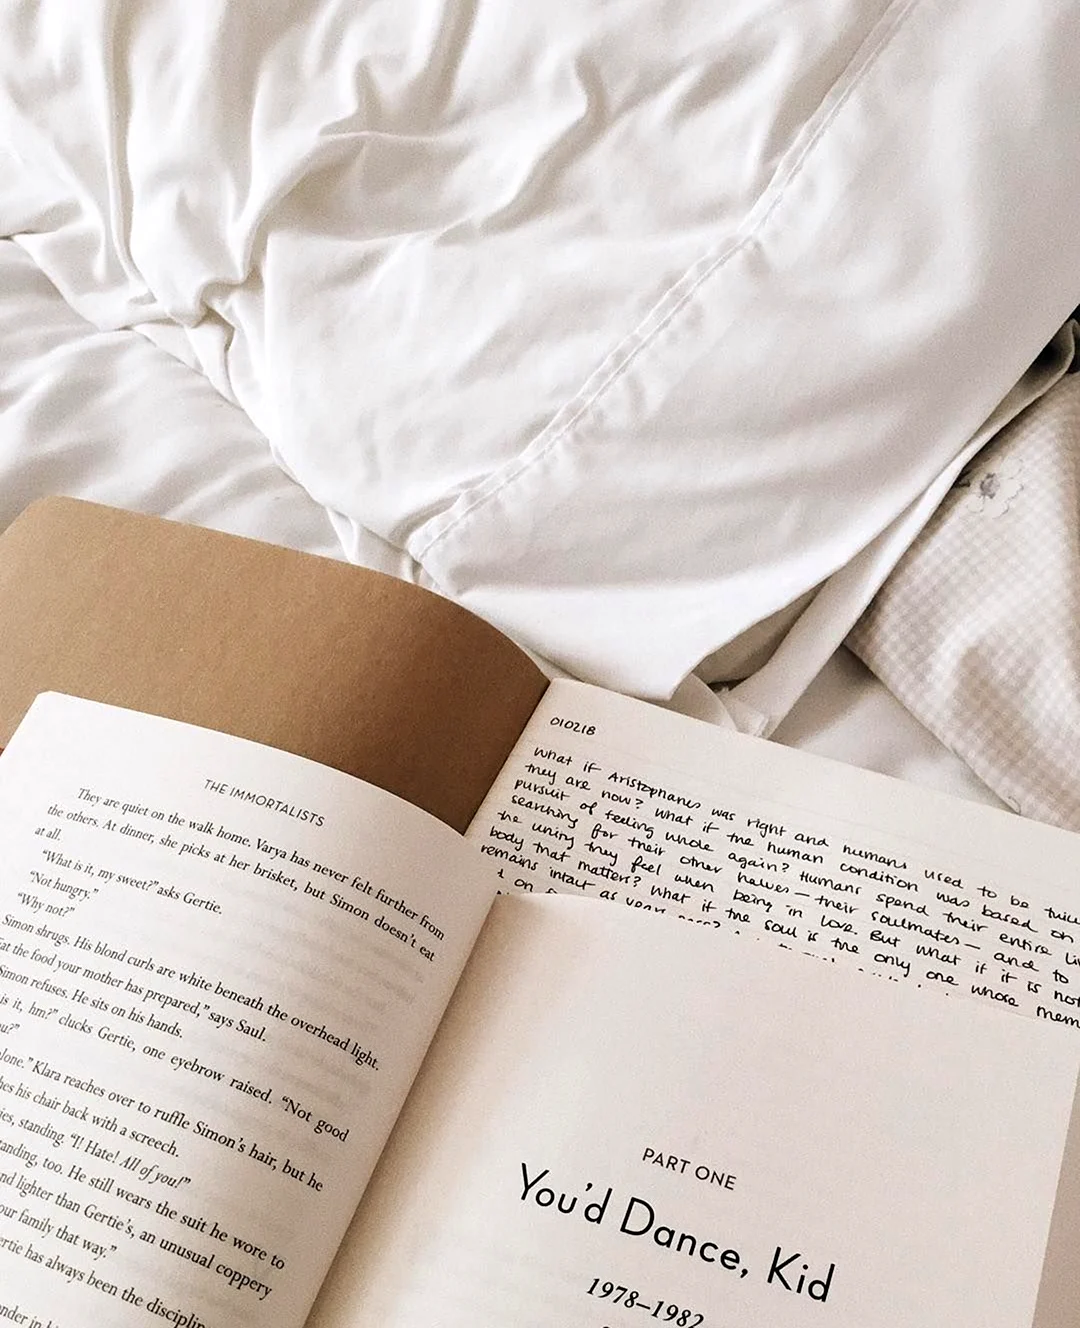 THE IMMORTALISTS
They are quiet on the walk home. Varya has never felt further from
the others. At dinner, she picks at her brisket, but Simon doesn't eat
at all.
"What is it, my sweet?" asks Gertie.
"Not hungry."
"Why not?"
Simon shrugs. His blond curls are white beneath the overhead light.
the food your mother has prepared," says Saul.
Simon refuses. He sits on his hands.
is it, hm?" clucks Gertie, one eyebrow raised. "Not good
Klara reaches over to ruffle Simon's hair, but he
his chair back with a screech.
standing. "I! Hate! All of you!"
standing, too. He still wears the suit he wore to
lighter than Gertie's, an unusual coppery
family that way."
has always been the
010218
What if Aristophanes was right and humans used to be
they are now? What if the human condition was based on
pursuit of feeling whole again? Humans spend their entire
searching for their other halves — their soulmates — and to
the uning they feel when being in love. But what if it is not
body that matters? What if the soul is the only one whose
remains intact as years
on
PART ONE
You'd Dance, Kid
1978–1982